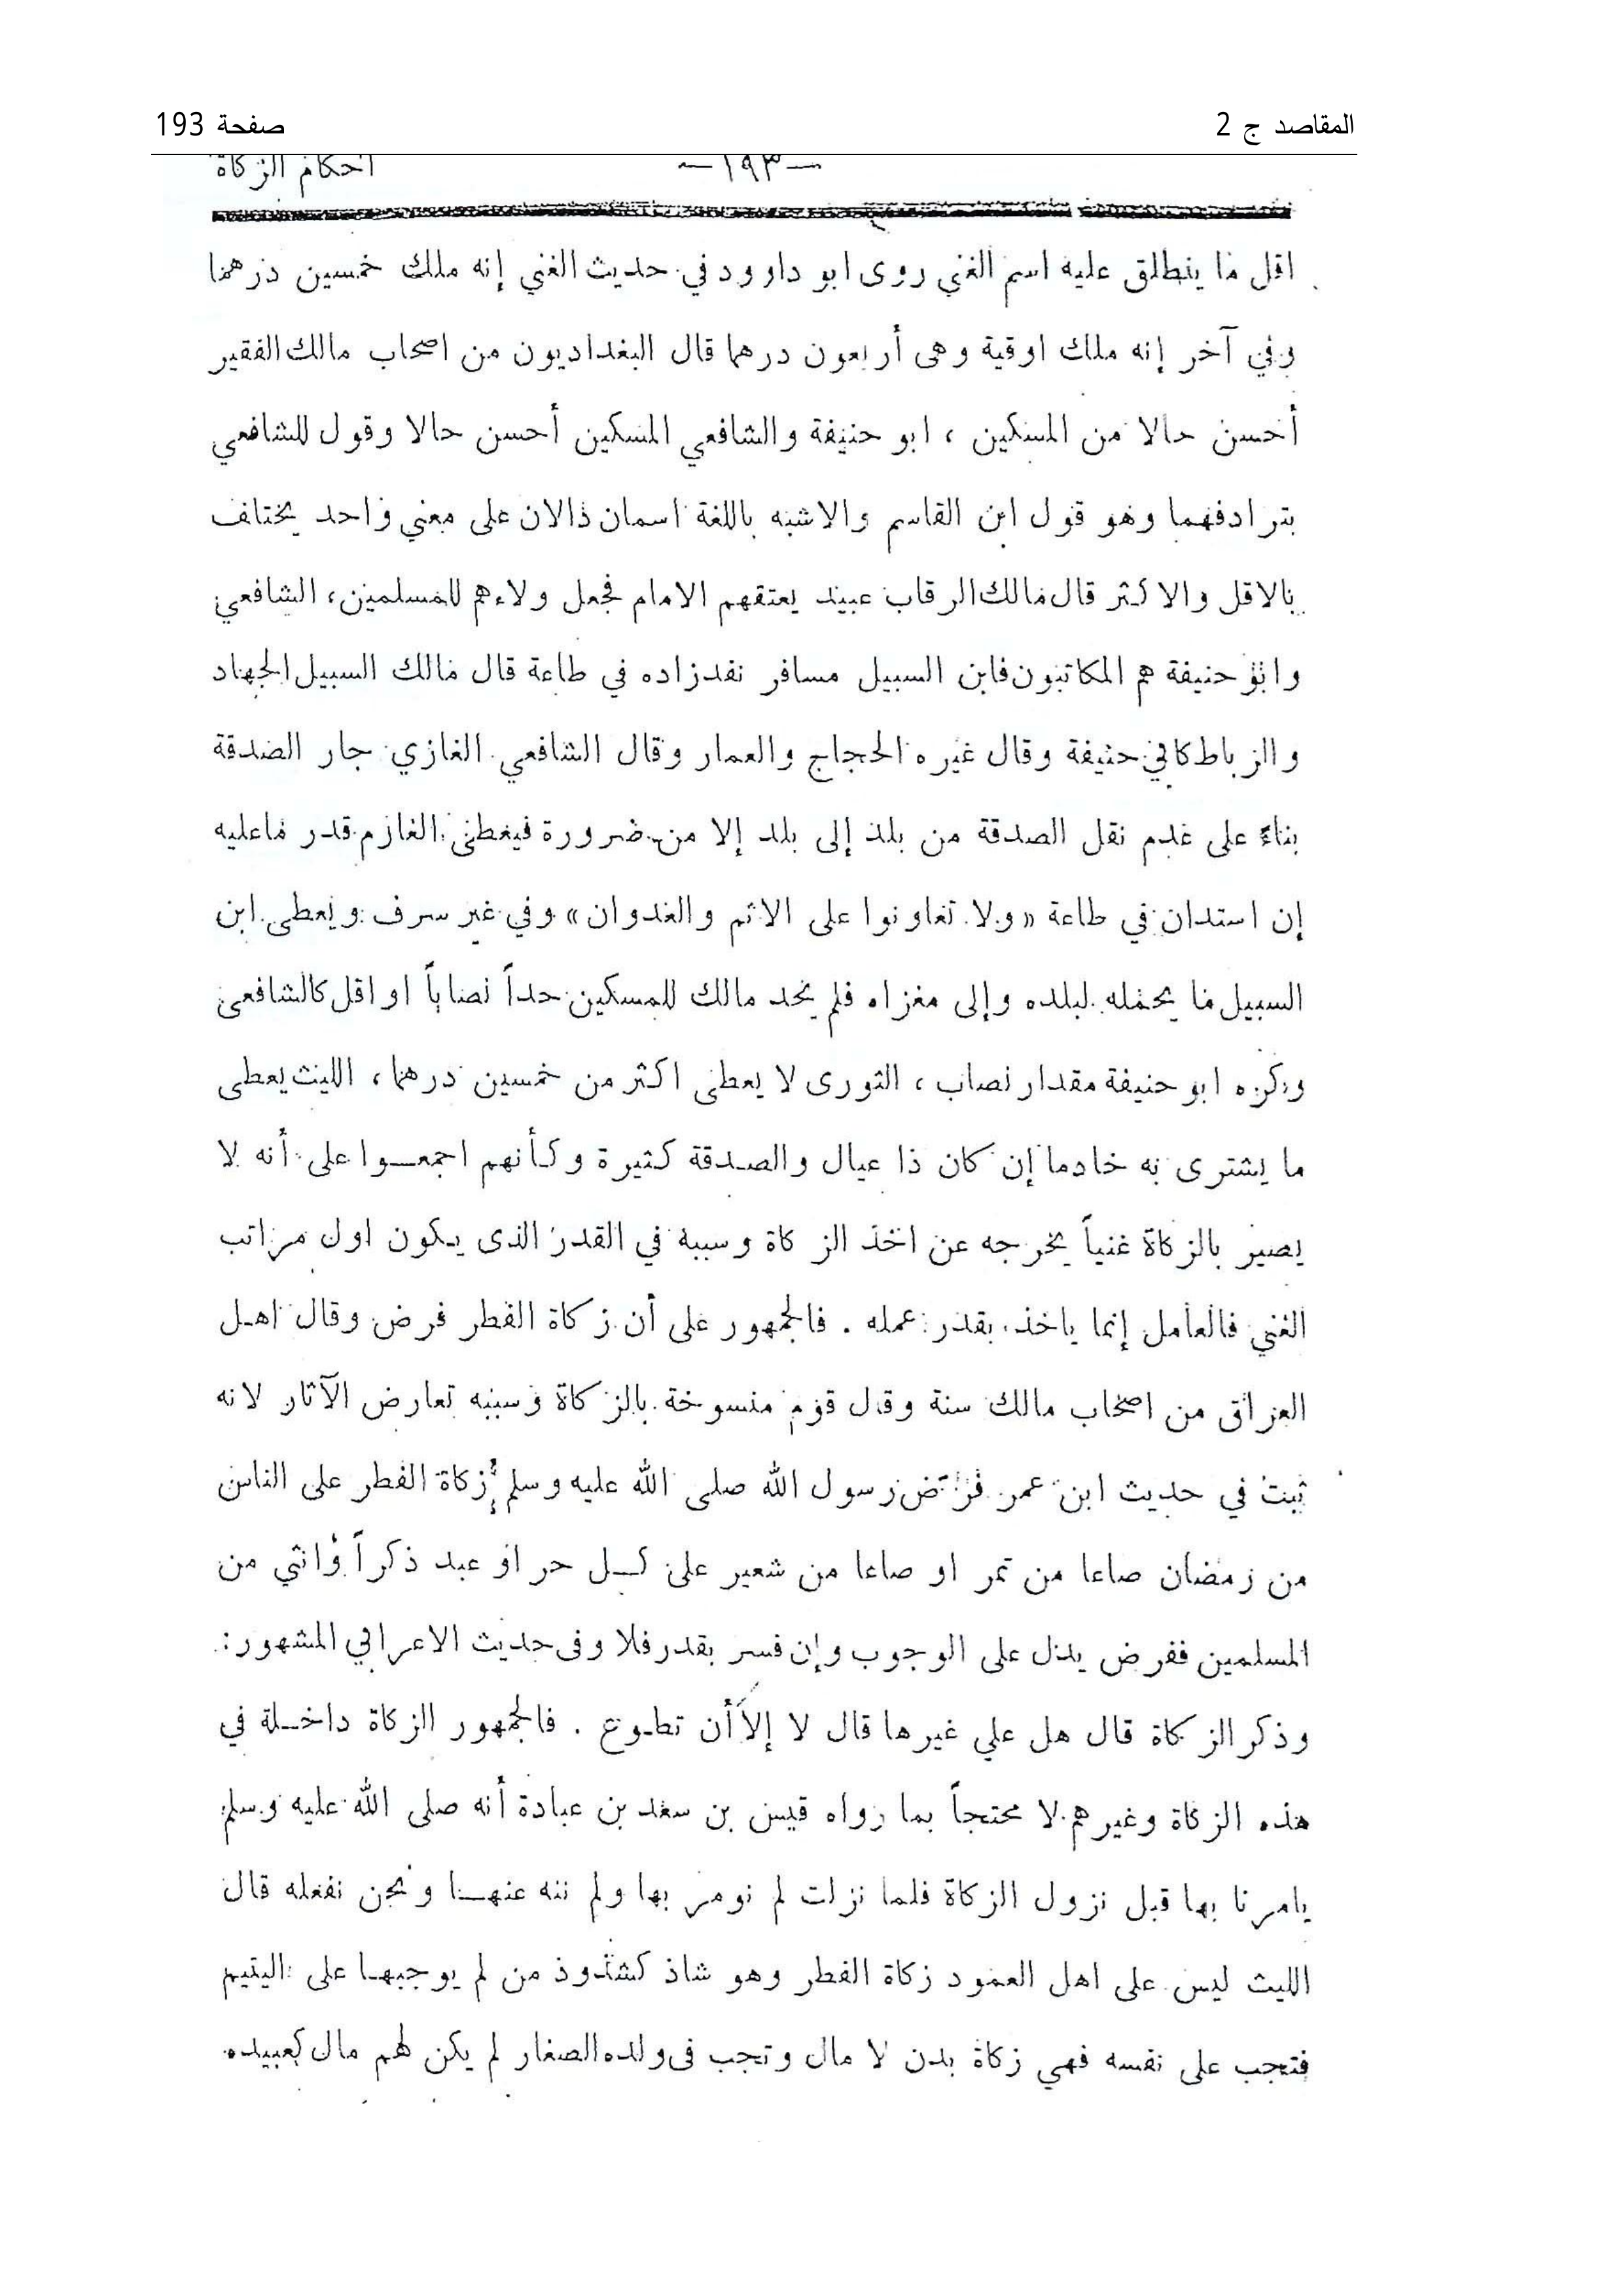 المقاصد ج 2
صفحة 193
احكام الزكاة
—١٩٣—
اقل ما ينطلق عليه اسم الغني روى ابو داوود في حديث الغني إنه ملك خمسين درهما
وفي آخر إنه ملك اوقية وهى أربعون درهما قال البغداديون من اصحاب مالك الفقير
أحسن حالا من المسكين ، ابو حنيفة والشافعي المسكين أحسن حالا وقول للشافعي
بترادفهما وهو قول ابن القاسم والاشبه باللغة اسمان دالان على معنى واحد يختلف
بالاقل والاكثر قال مالك الرقاب عبيد يعتقهم الامام فجعل ولاءهم للمسلمين، الشافعي
وابو حنيفة هم المكاتبون فابن السبيل مسافر نفد زاده في طاعة قال مالك السبيل الجهاد
والرباط كابي حنيفة وقال غيره الحجاج والعمار وقال الشافعي الغازي جار الصدقة
بناءً على عدم نقل الصدقة من بلد إلى بلد إلا من ضرورة فيعطى الغارم قدر ما عليه
إن استدان في طاعة « ولا تعاونوا على الاثم والعدوان » وفي غير سرف ويعطى ابن
السبيل ما يحمله لبلده وإلى مغزاه فلم يحد مالك للمسكين حداً نصاباً او اقل كالشافعى
وكره ابو حنيفة مقدار نصاب ، الثورى لا يعطى اكثر من خمسين درهما ، الليث يعطى
ما يشترى به خادما إن كان ذا عيال والصدقة كثيرة وكأنهم اجمعوا على أنه لا
يصير بالزكاة غنياً يخرجه عن اخذ الزكاة وسببه في القدر الذى يكون اول مراتب
الغني فالعامل إنما ياخذ بقدر عمله . فالجمهور على أن زكاة الفطر فرض وقال اهل
العراق من اصحاب مالك سنة وقال قوم منسوخة بالزكاة وسببه تعارض الآثار لانه
ثبت في حديث ابن عمر فرض رسول الله صلى الله عليه وسلم زكاة الفطر على الناس
من رمضان صاعا من تمر او صاعا من شعير على كل حر او عبد ذكراً وانثي من
المسلمين ففرض يدل على الوجوب وإن فسر بقدر فلا وفى حديث الاعرابي المشهور :
وذكر الزكاة قال هل علي غيرها قال لا إلا أن تطوع . فالجمهور الزكاة داخلة في
هذه الزكاة وغيرهم لا محتجاً بما رواه قيس بن سعد بن عبادة أنه صلى الله عليه وسلم
يامرنا بها قبل نزول الزكاة فلما نزلت لم نومر بها ولم ننه عنها ونحن نفعله قال
الليث ليس على اهل العمود زكاة الفطر وهو شاذ كشذوذ من لم يوجبها على اليتيم
فتجب على نفسه فهي زكاة بدن لا مال وتجب فى ولده الصغار لم يكن لهم مال كعبيده